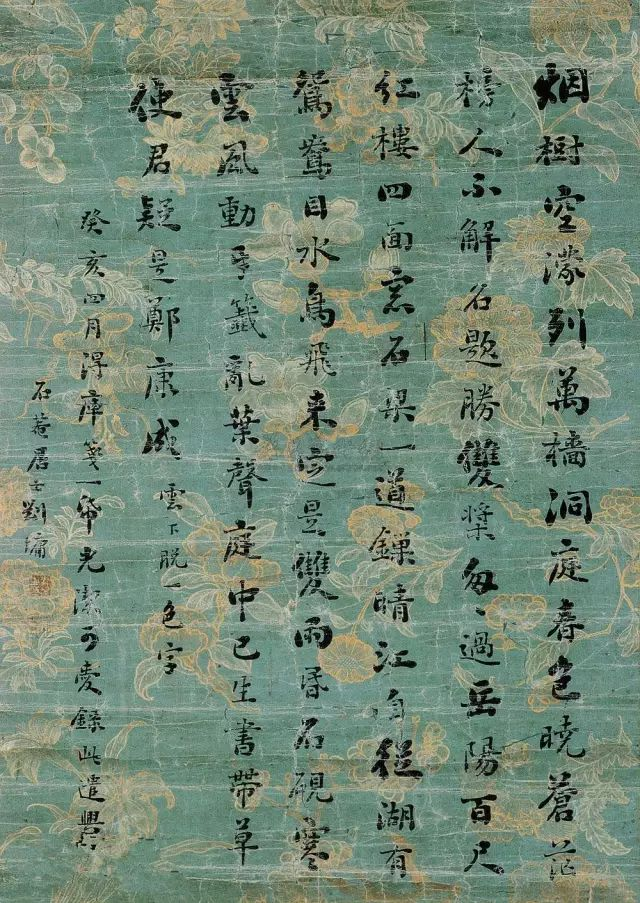 烟樹空濛列萬檣洞庭春色曉蒼茫
榜人不解名題勝雙槳匆〻過岳陽百尺
紅樓四面窓石梁一道鏁晴江自從湖有
鴛鴦目水鳥飛來定是雙雨昏石硯寒
雲風動牙籤亂葉聲庭中已生書帶草
使君疑是鄭康成 雲下脫一色字
癸亥四月淂庫箋一帋光潔可愛錄此遣興
石菴居士劉墉